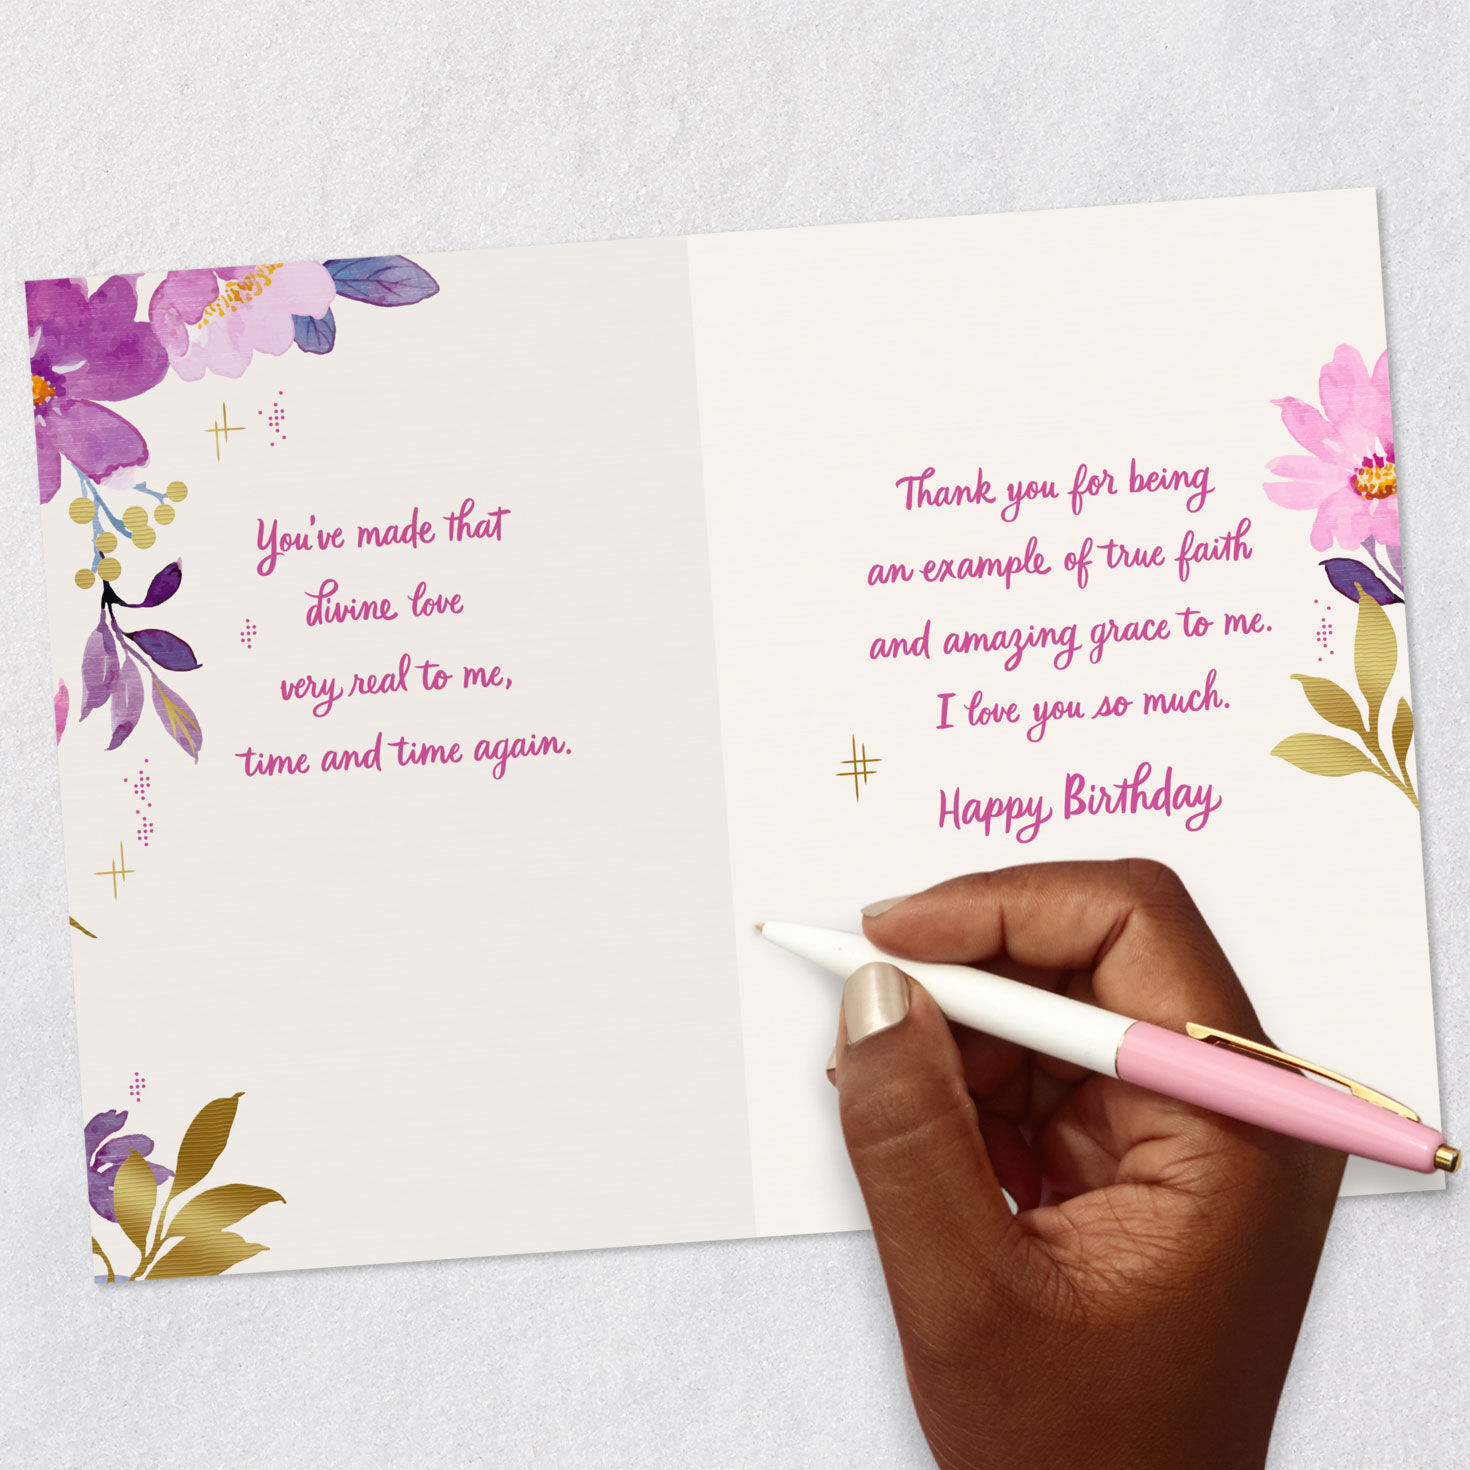 You've made that
divine love
very real to me,
time and time again.
Thank you for being
an example of true faith
and amazing grace to me.
I love you so much.
Happy Birthday